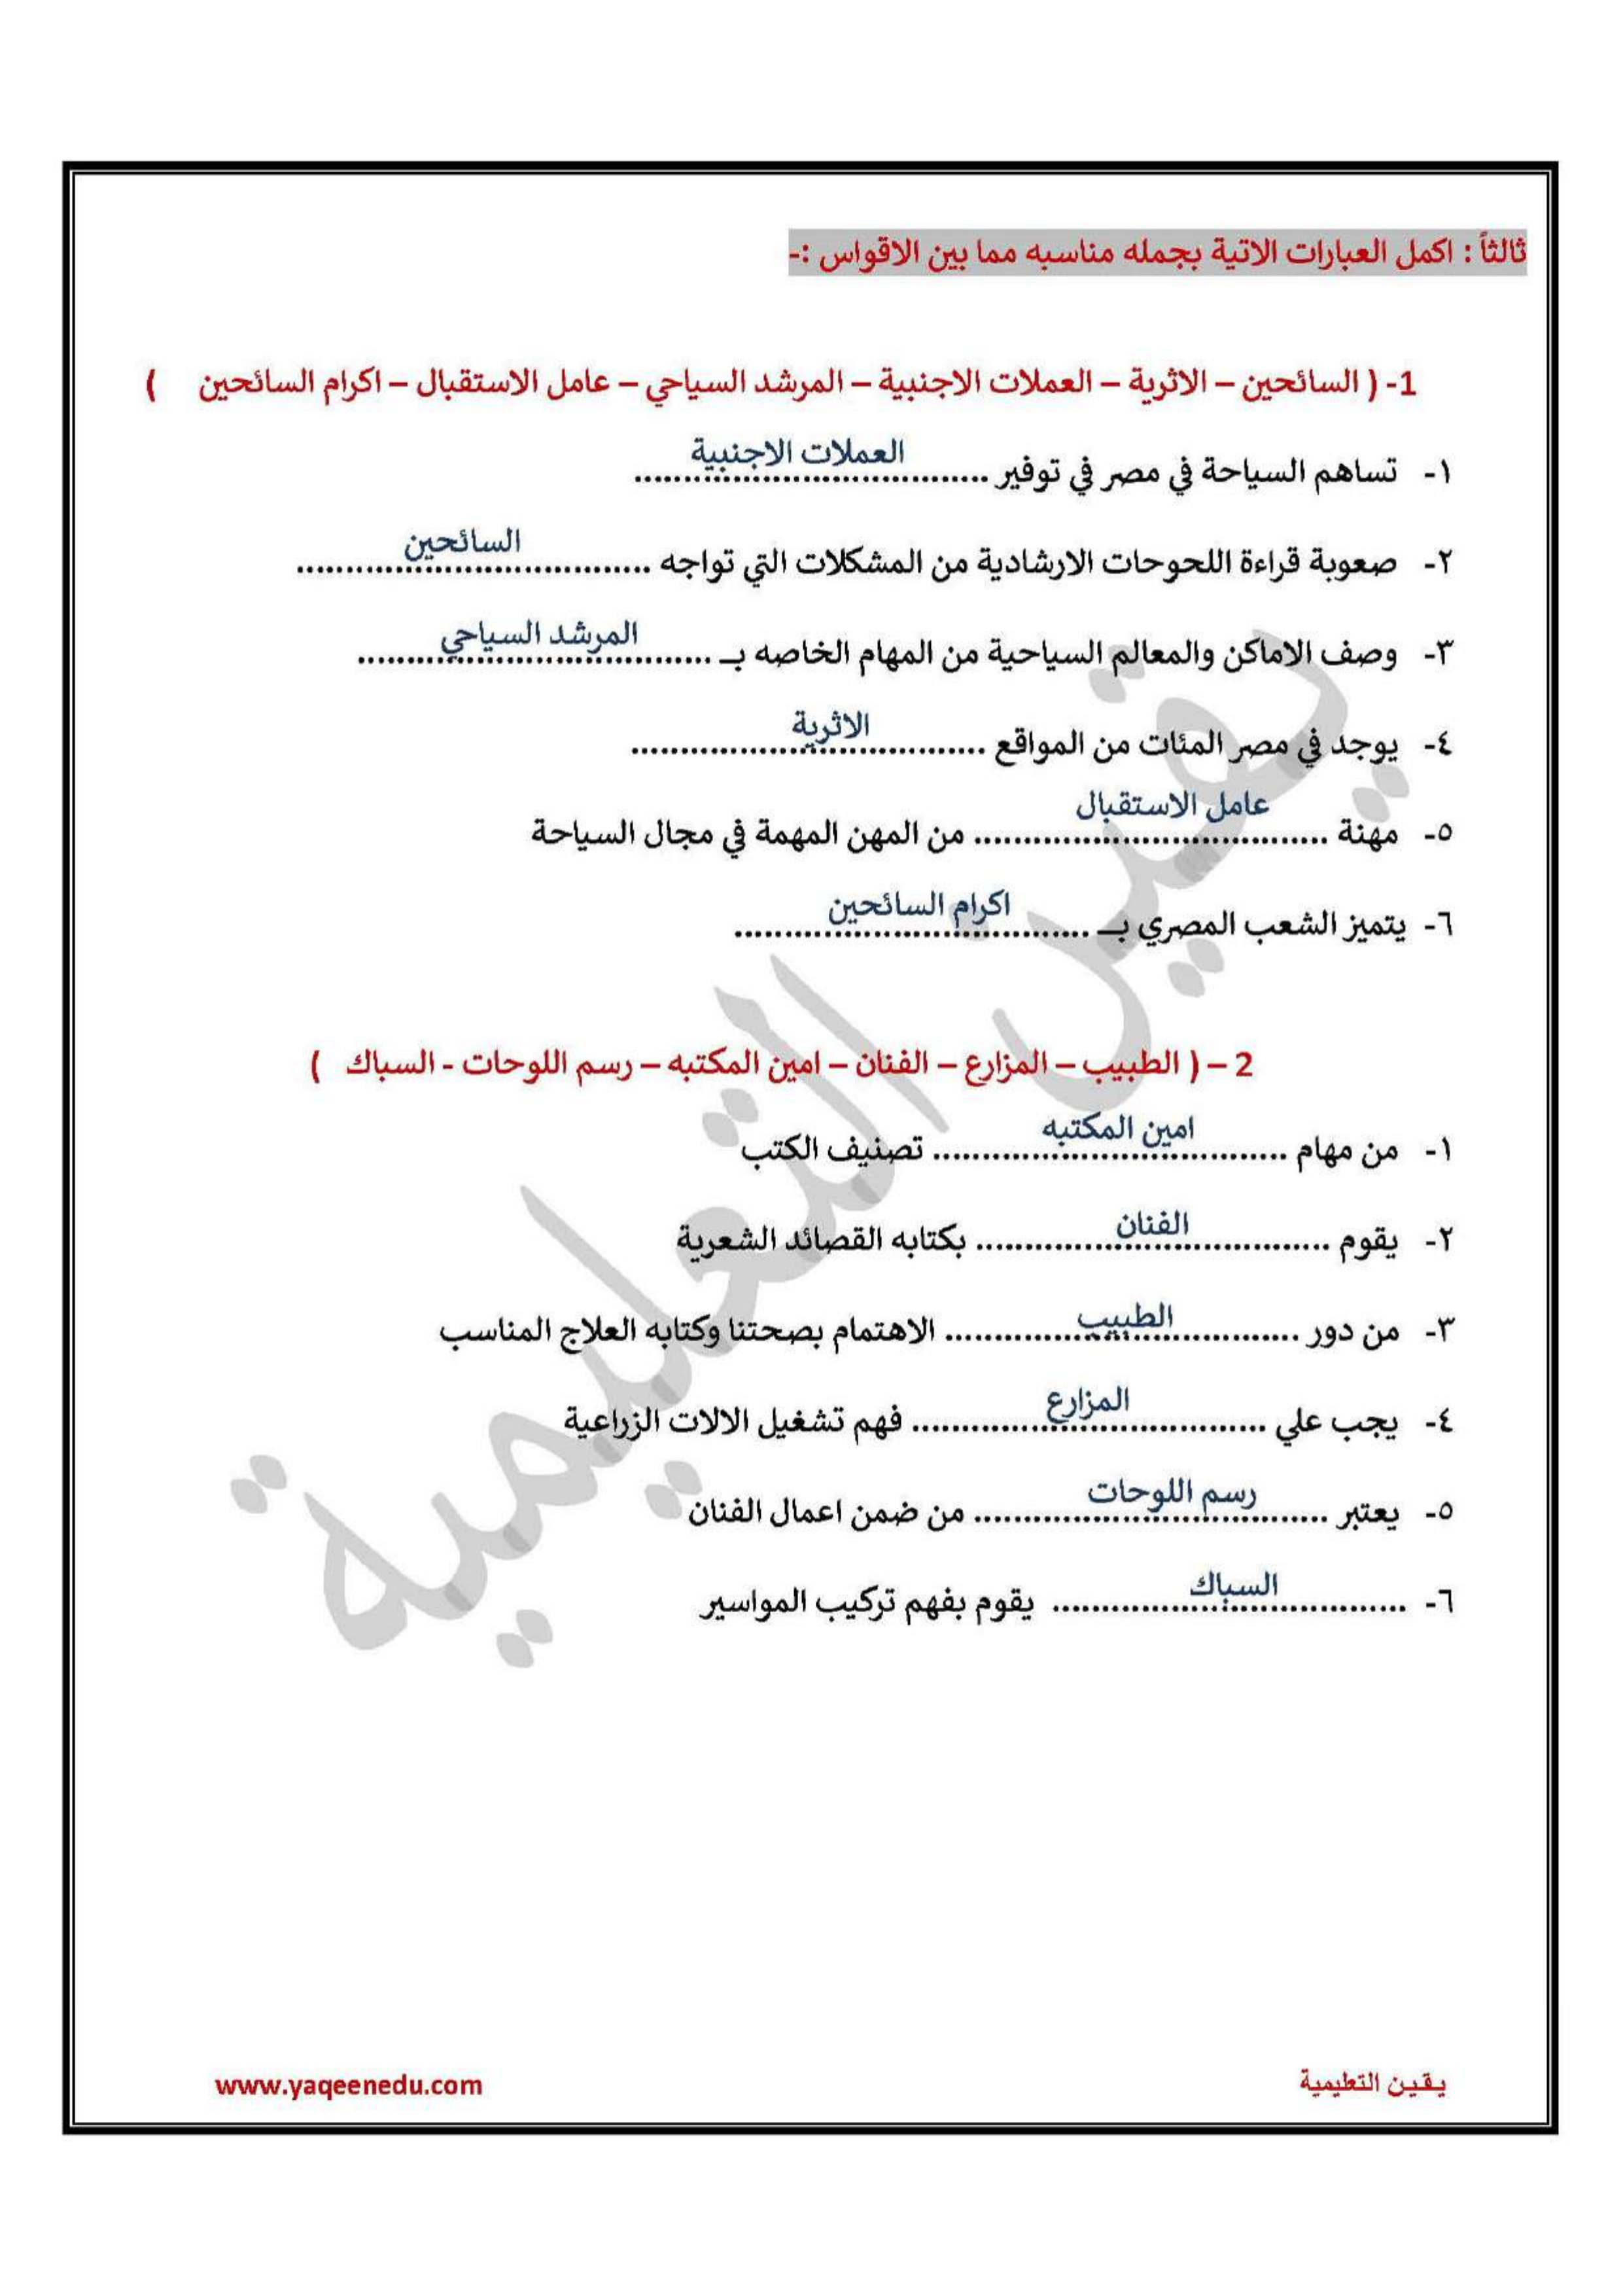 ثالثاً : اكمل العبارات الاتية بجمله مناسبه مما بين الاقواس :-
1- ( السائحين – الاثرية – العملات الاجنبية – المرشد السياحي – عامل الاستقبال – اكرام السائحين )
١- تساهم السياحة في مصر في توفير العملات الاجنبية
٢- صعوبة قراءة اللحوحات الارشادية من المشكلات التي تواجه السائحين
٣- وصف الاماكن والمعالم السياحية من المهام الخاصه بـ المرشد السياحي
٤- يوجد في مصر المئات من المواقع الاثرية
٥- مهنة عامل الاستقبال من المهن المهمة في مجال السياحة
٦- يتميز الشعب المصري بـ اكرام السائحين
2 – ( الطبيب – المزارع – الفنان – امين المكتبه – رسم اللوحات - السباك )
١- من مهام امين المكتبه تصنيف الكتب
٢- يقوم الفنان بكتابه القصائد الشعرية
٣- من دور الطبيب الاهتمام بصحتنا وكتابه العلاج المناسب
٤- يجب علي المزارع فهم تشغيل الالات الزراعية
٥- يعتبر رسم اللوحات من ضمن اعمال الفنان
٦- السباك يقوم بفهم تركيب المواسير
يقين التعليمية
يقين التعليمية www.yaqeenedu.com